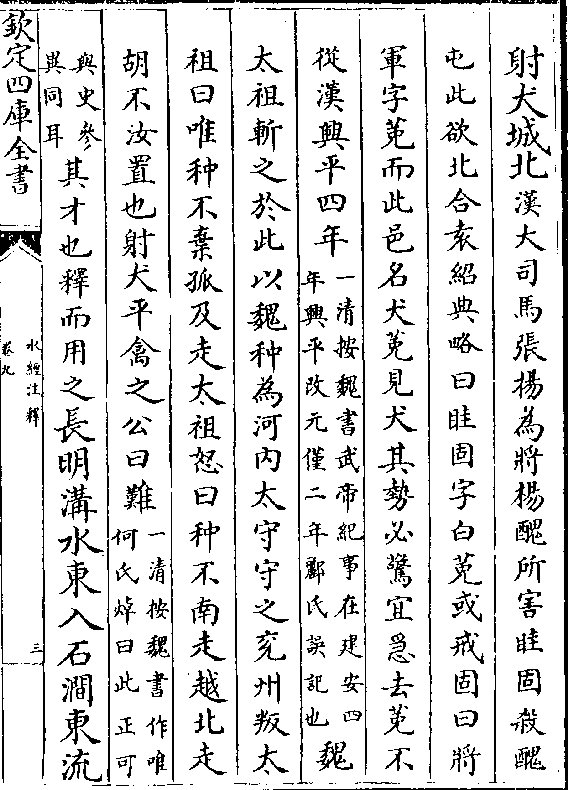 射犬城北漢大司馬張楊為將楊醜所害眭固殺醜
屯此欲北合袁紹典略曰眭固字白菟或戒固曰將
軍字菟而此邑名犬菟見犬其勢必驚宜急去菟不
從漢興平四年一清按魏書武帝紀事在建安四年興平改元僅二年酈氏誤記也魏
太祖斬之於此以魏种為河内太守守之兖州叛太
祖曰唯种不棄孤及走太祖怒曰种不南走越北走
胡不汝置也射犬平禽之公曰難一清按魏書作唯何氏焯曰此正可
與史參異同耳其才也釋而用之長明溝水東入石澗東流
欽定四庫全書
水經注釋
卷九
三